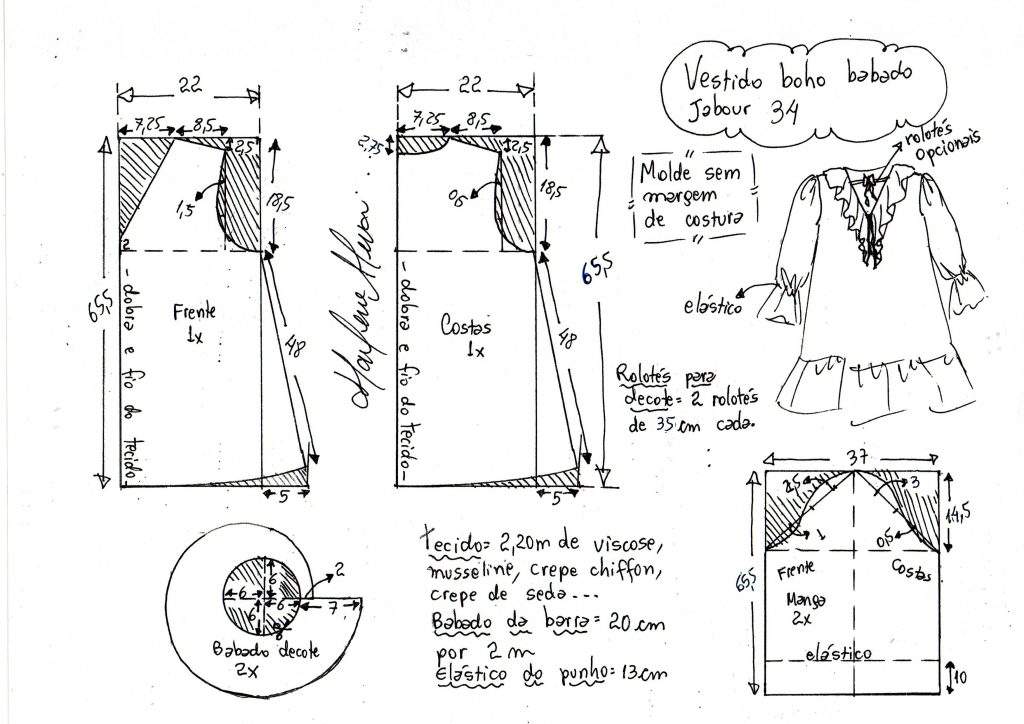 Vestido boho babado
Jabour 34
Molde sem
margem
de costura
rolotés
opcionais
elástico
Rolotés para
decote= 2 rolotés
de 35 cm cada.
22
7,25
8,5
2,5
1,5
18,5
2
65,5
Frente
1x
- dobra e fio do tecido -
48
5
Marlene Mukai
22
7,25
8,5
2,75
2,5
0,6
18,5
65,5
Costas
1x
- dobra e fio do tecido -
48
5
6
6
6
6
2
7
Babado decote
2x
tecido= 2,20m de viscose,
musseline, crepe chiffon,
crepe de seda...
Babado da barra= 20 cm
por 2 m
Elástico do punho= 13 cm
37
2,5
3
1
0,5
14,5
65,5
Frente
Costas
Manga
2x
elástico
10